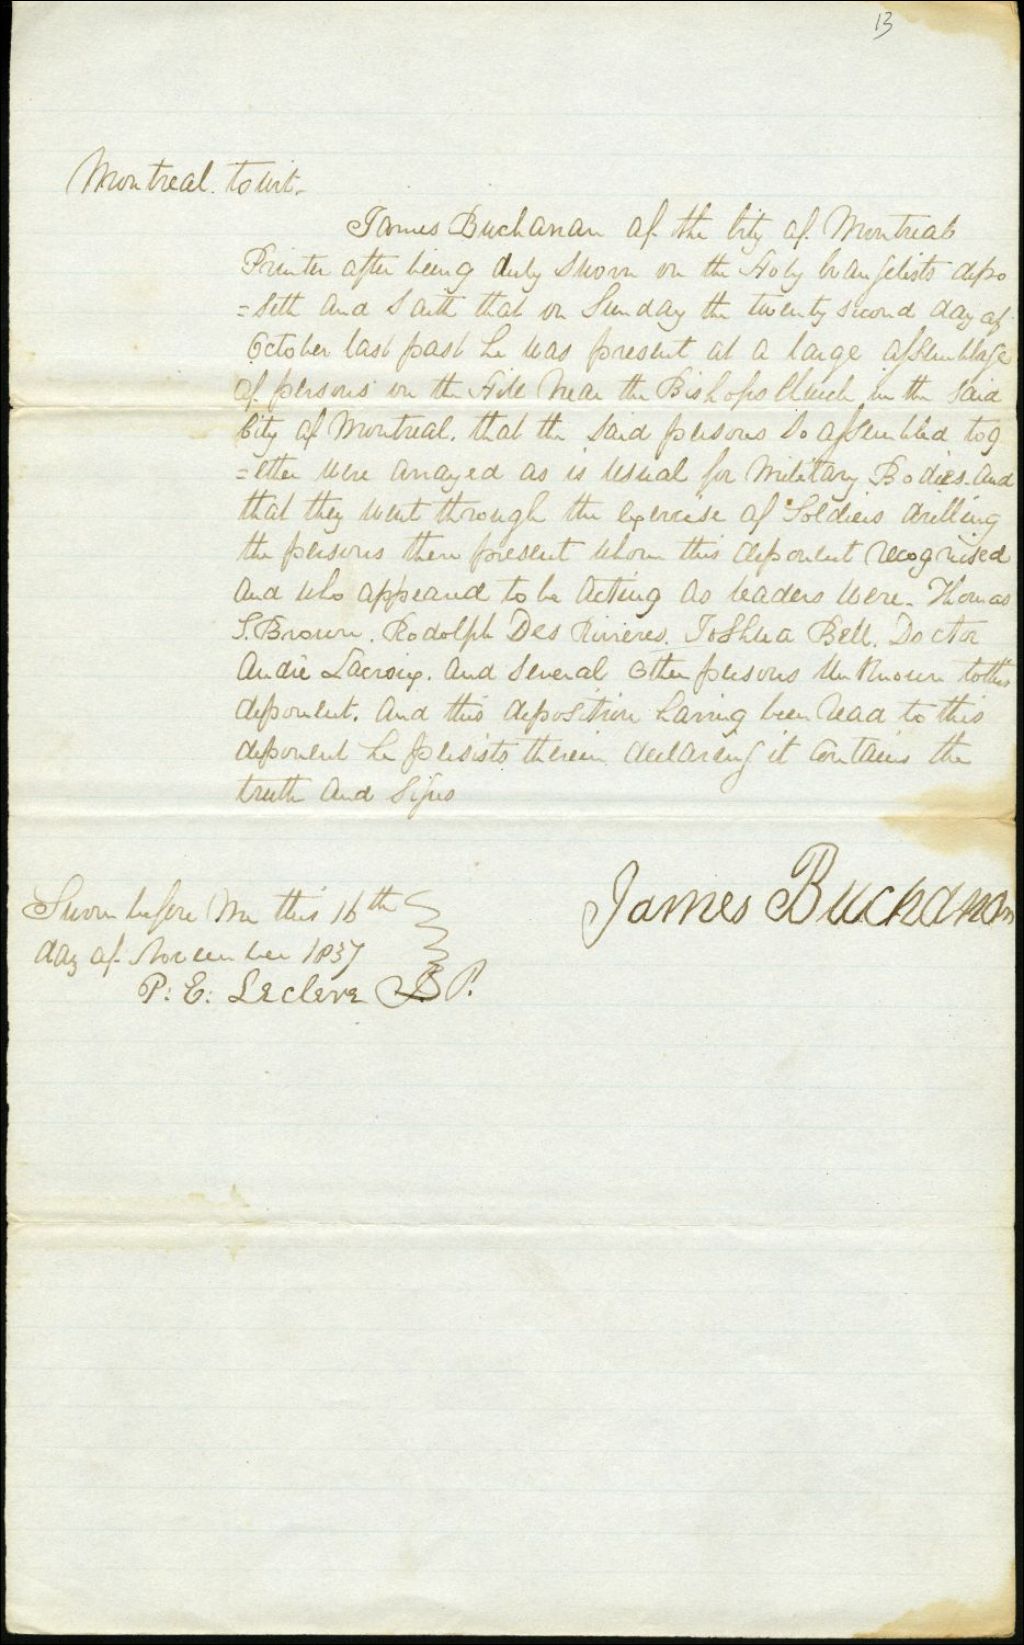 13
Montreal. to wit.
James Buchanan of the City of Montreal
Printer after being duly sworn on the Holy Evangelists depo
=seth and saith that on Sunday the twenty second day of
October last past he was present at a large assemblage
of persons on the Hill near the Bishops Church in the said
City of Montreal. that the said persons so assembled tog
=ether were arrayed as is usual for Military Bodies. and
that they went through the exercise of Soldiers drilling
the persons there present whom this deponent recognised
and who appeared to be acting as leaders were. Thomas
S. Brown. Rodolph Des Rivieres. Joshua Bell. Doctor
Andre Lacroix. and several other persons unknown to this
deponent. and this deposition having been read to this
deponent he persists therein declaring it contains the
truth and signs
James Buchanan
Sworn before me this 16th
day of November 1837
P: E: Leclere JP.